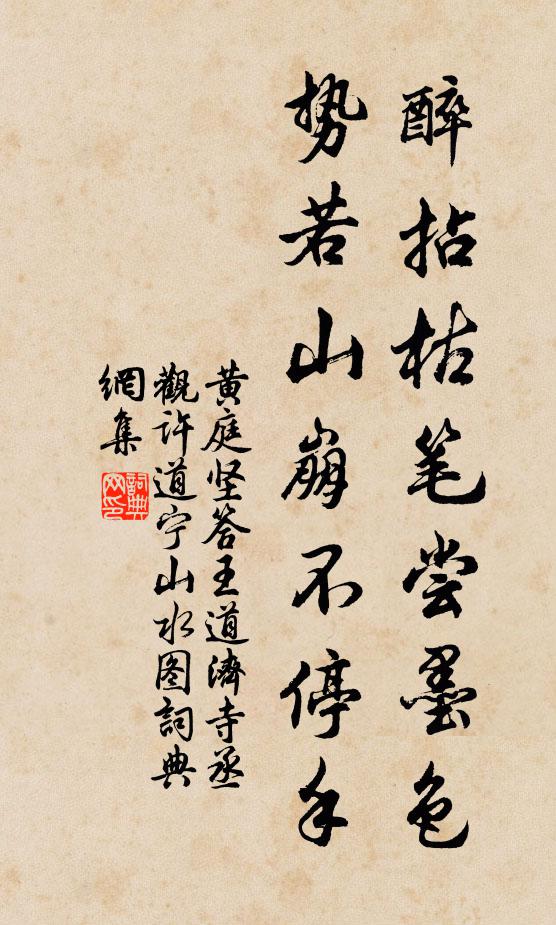 醉拈枯笔尝墨色
势若山崩不停手
黄庭坚答王道濟寺丞
觀许道宁山水图詞典
網集
詞典网印